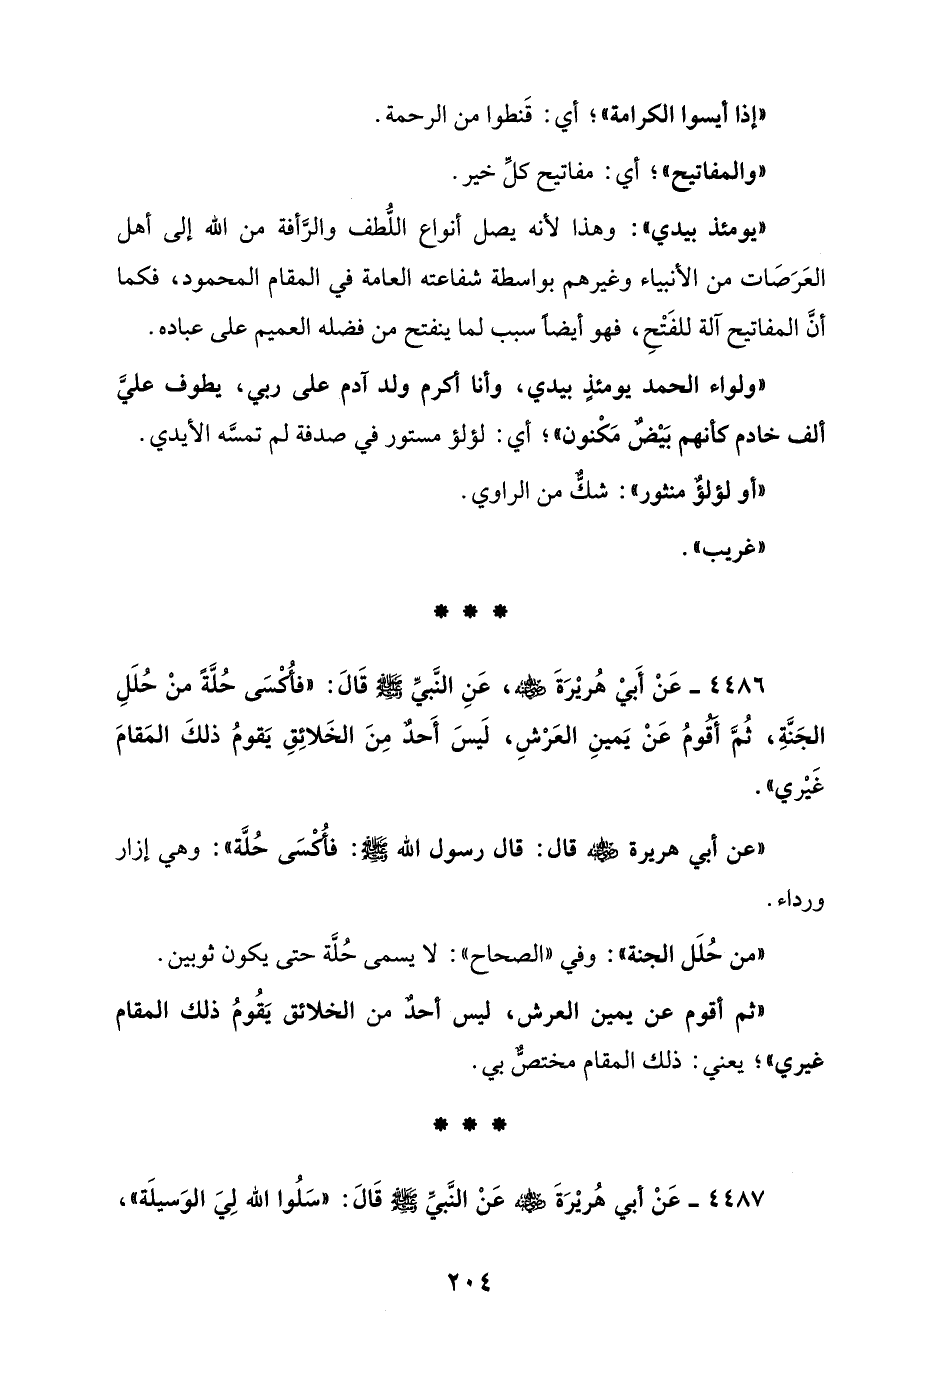 «إذا أيسوا الكرامة»؛ أي: قَنطوا من الرحمة.
«والمفاتيح»؛ أي: مفاتيح كلِّ خير.
«يومئذ بيدي»: وهذا لأنه يصل أنواع اللُّطف والرَّأفة من الله إلى أهل
العَرَصَات من الأنبياء وغيرهم بواسطة شفاعته العامة في المقام المحمود، فكما
أنَّ المفاتيح آلة للفَتْحِ، فهو أيضاً سبب لما ينفتح من فضله العميم على عباده.
«ولواء الحمد يومئذٍ بيدي، وأنا أكرم ولد آدم على ربي، يطوف عليَّ
ألف خادم كأنهم بَيْضٌ مَكْنون»؛ أي: لؤلؤ مستور في صدفة لم تمسَّه الأيدي.
«أو لؤلؤٌ منثور»: شكٌّ من الراوي.
«غريب».
* * *
٤٤٨٦ ـ عَنْ أَبيْ هُريْرَةَ ﵁، عَنِ النَّبيِّ ﷺ قَالَ: «فأُكْسَى حُلَّةً منْ حُلَلِ
الجَنَّةِ، ثُمَّ أَقُومُ عَنْ يَمينِ العَرْشِ، لَيسَ أَحدٌ مِنَ الخَلائِقِ يَقومُ ذلكَ المَقامَ
غَيْري».
«عن أبي هريرة ﵁ قال: قال رسول الله ﷺ: فأُكْسَى حُلَّة»: وهي إزار
ورداء.
«من حُلَل الجنة»: وفي «الصحاح»: لا يسمى حُلَّة حتى يكون ثوبين.
«ثم أقوم عن يمين العرش، ليس أحدٌ من الخلائق يَقُومُ ذلك المقام
غيري»؛ يعني: ذلك المقام مختصٌّ بي.
* * *
٤٤٨٧ ـ عَنْ أبي هُريْرَةَ ﵁ عَنْ النَّبيِّ ﷺ قَالَ: «سَلُوا الله لِيَ الوَسيلَة»،
٢٠٤